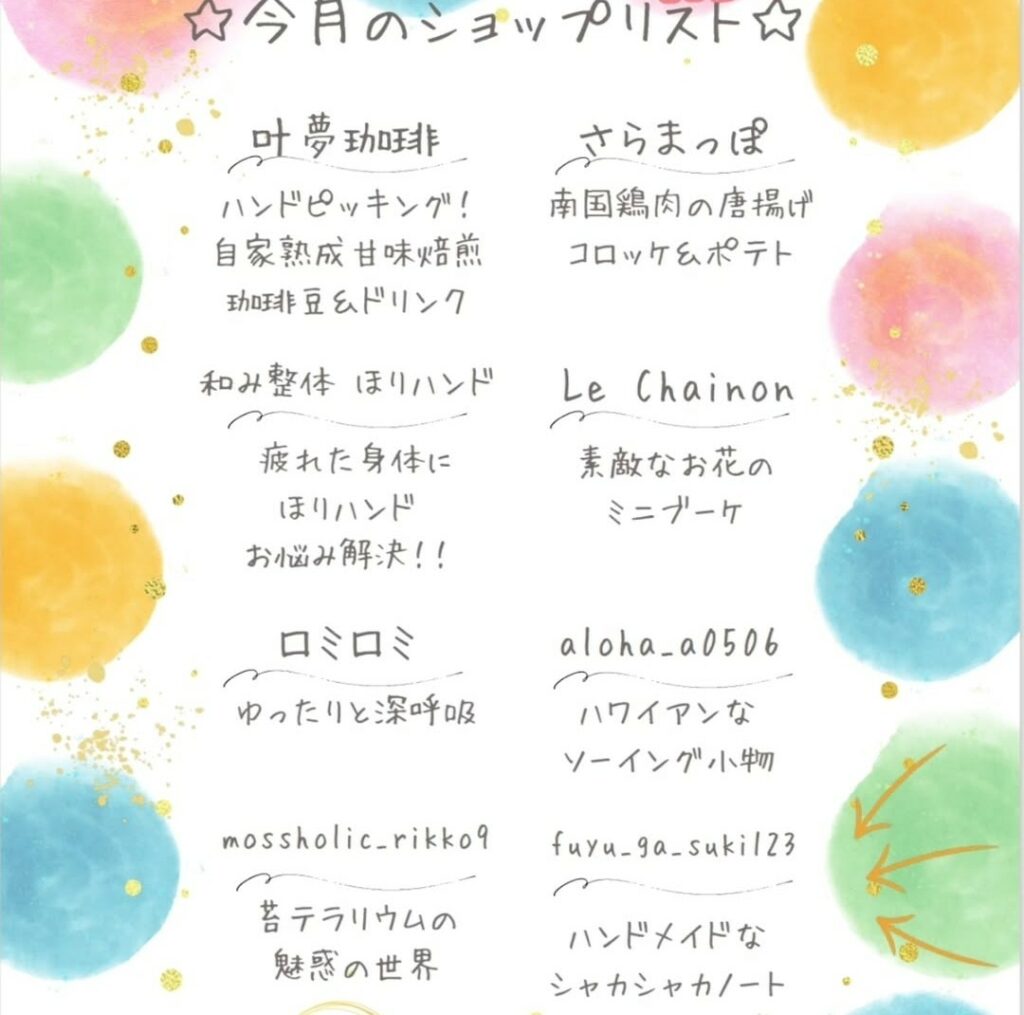 ☆今月のショップリスト☆
叶夢珈琲
ハンドピッキング!
自家熟成甘味焙煎
珈琲豆&ドリンク
さらまっぽ
南国鶏肉の唐揚げ
コロッケ&ポテト
和み整体 ほりハンド
疲れた身体に
ほりハンド
お悩み解決!!
Le Chainon
素敵なお花の
ミニブーケ
ロミロミ
ゆったりと深呼吸
aloha_a0506
ハワイアンな
ソーイング小物
mossholic_rikko9
苔テラリウムの
魅惑の世界
fuyu_ga_suki123
ハンドメイドな
シャカシャカノート